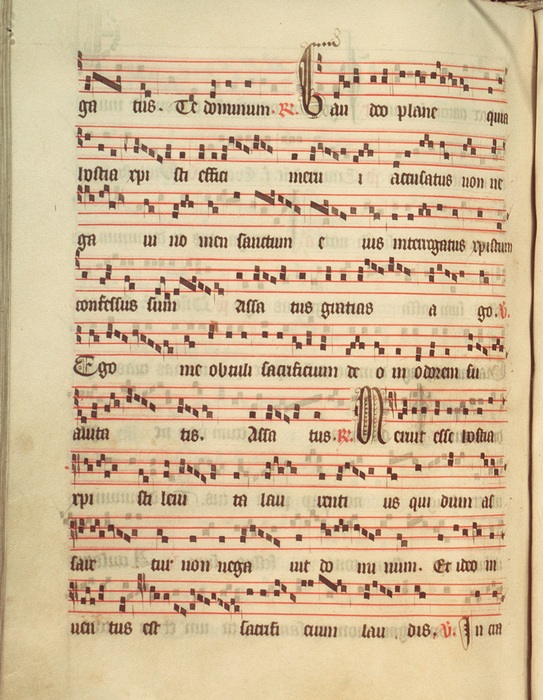 ga tus. Te dominum. R. Gau deo plane quia
hostia xpi sti effici merui accusatus non ne
gaui no men sanctum e ius interrogatus xpistum
confessus sum Assa tus gratias a go. V.
Ego me obtuli sacrificium de o in odorem su
auita tis. Assa tus. R. Meruit esse hostia
xpi sti leui ta lau renti us qui dum as
sare tur non nega uit do mi num. Et ideo in
uen tus est sacrifi cium lau dis. V. In cra